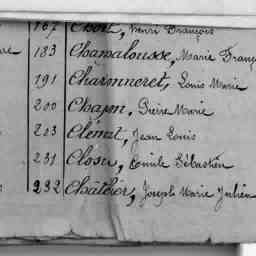 167 Chort, Henri François
183 Chamalousse, Marie Franç
191 Charonneret, Louis Marie
200 Chapon, Pierre Marie
203 Clémat, Jean Louis
231 Closer, Emile Sébastien
232 Châthier, Joseph Marie Julien